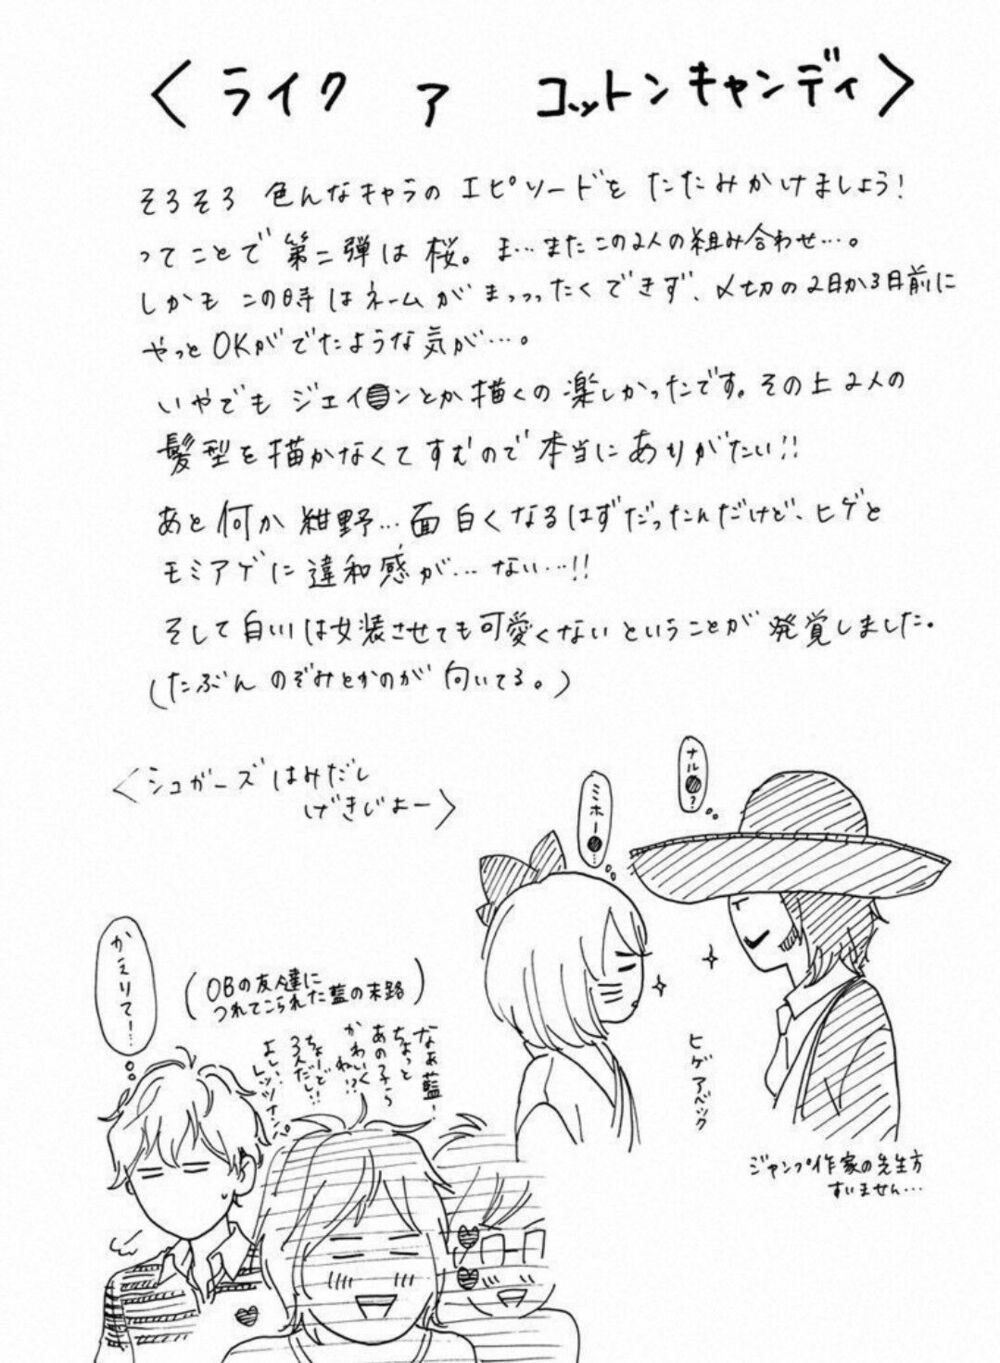 ＜ライク ア コットンキャンディ＞
そろそろ 色んなキャラの エピソードを たたみかけましょう!
ってことで 第二弾は 桜。ま…またこの2人の組み合わせ…。
しかも この時はネームが まっっったくできず、〆切の2日か3日前に
やっとOKがでたような気が…。
いやでも ジェイ●ンとか描くの楽しかったです。その上2人の
髪型を描かなくてすむので本当にありがたい!!
あと何か紺野…面白くなるはずだったんだけど、ヒゲと
モミアゲに違和感が…ない…!!
そして白川は女装させても可愛くないということが発覚しました。
(たぶん のぞみとかのが 向いてる。)
＜シュガーズはみだし
げきじょー＞
ナル●?
ミホー●…
ヒゲアベック
ジャンプ作家の先生方
すいません…
かえりて!…
(OBの友人達に
つれてこられた藍の末路)
なぁ藍!
ちょっと
あの子ら
かわいく
ね!?
ちょーど
3人だし!!
よし、
レッツナンパ